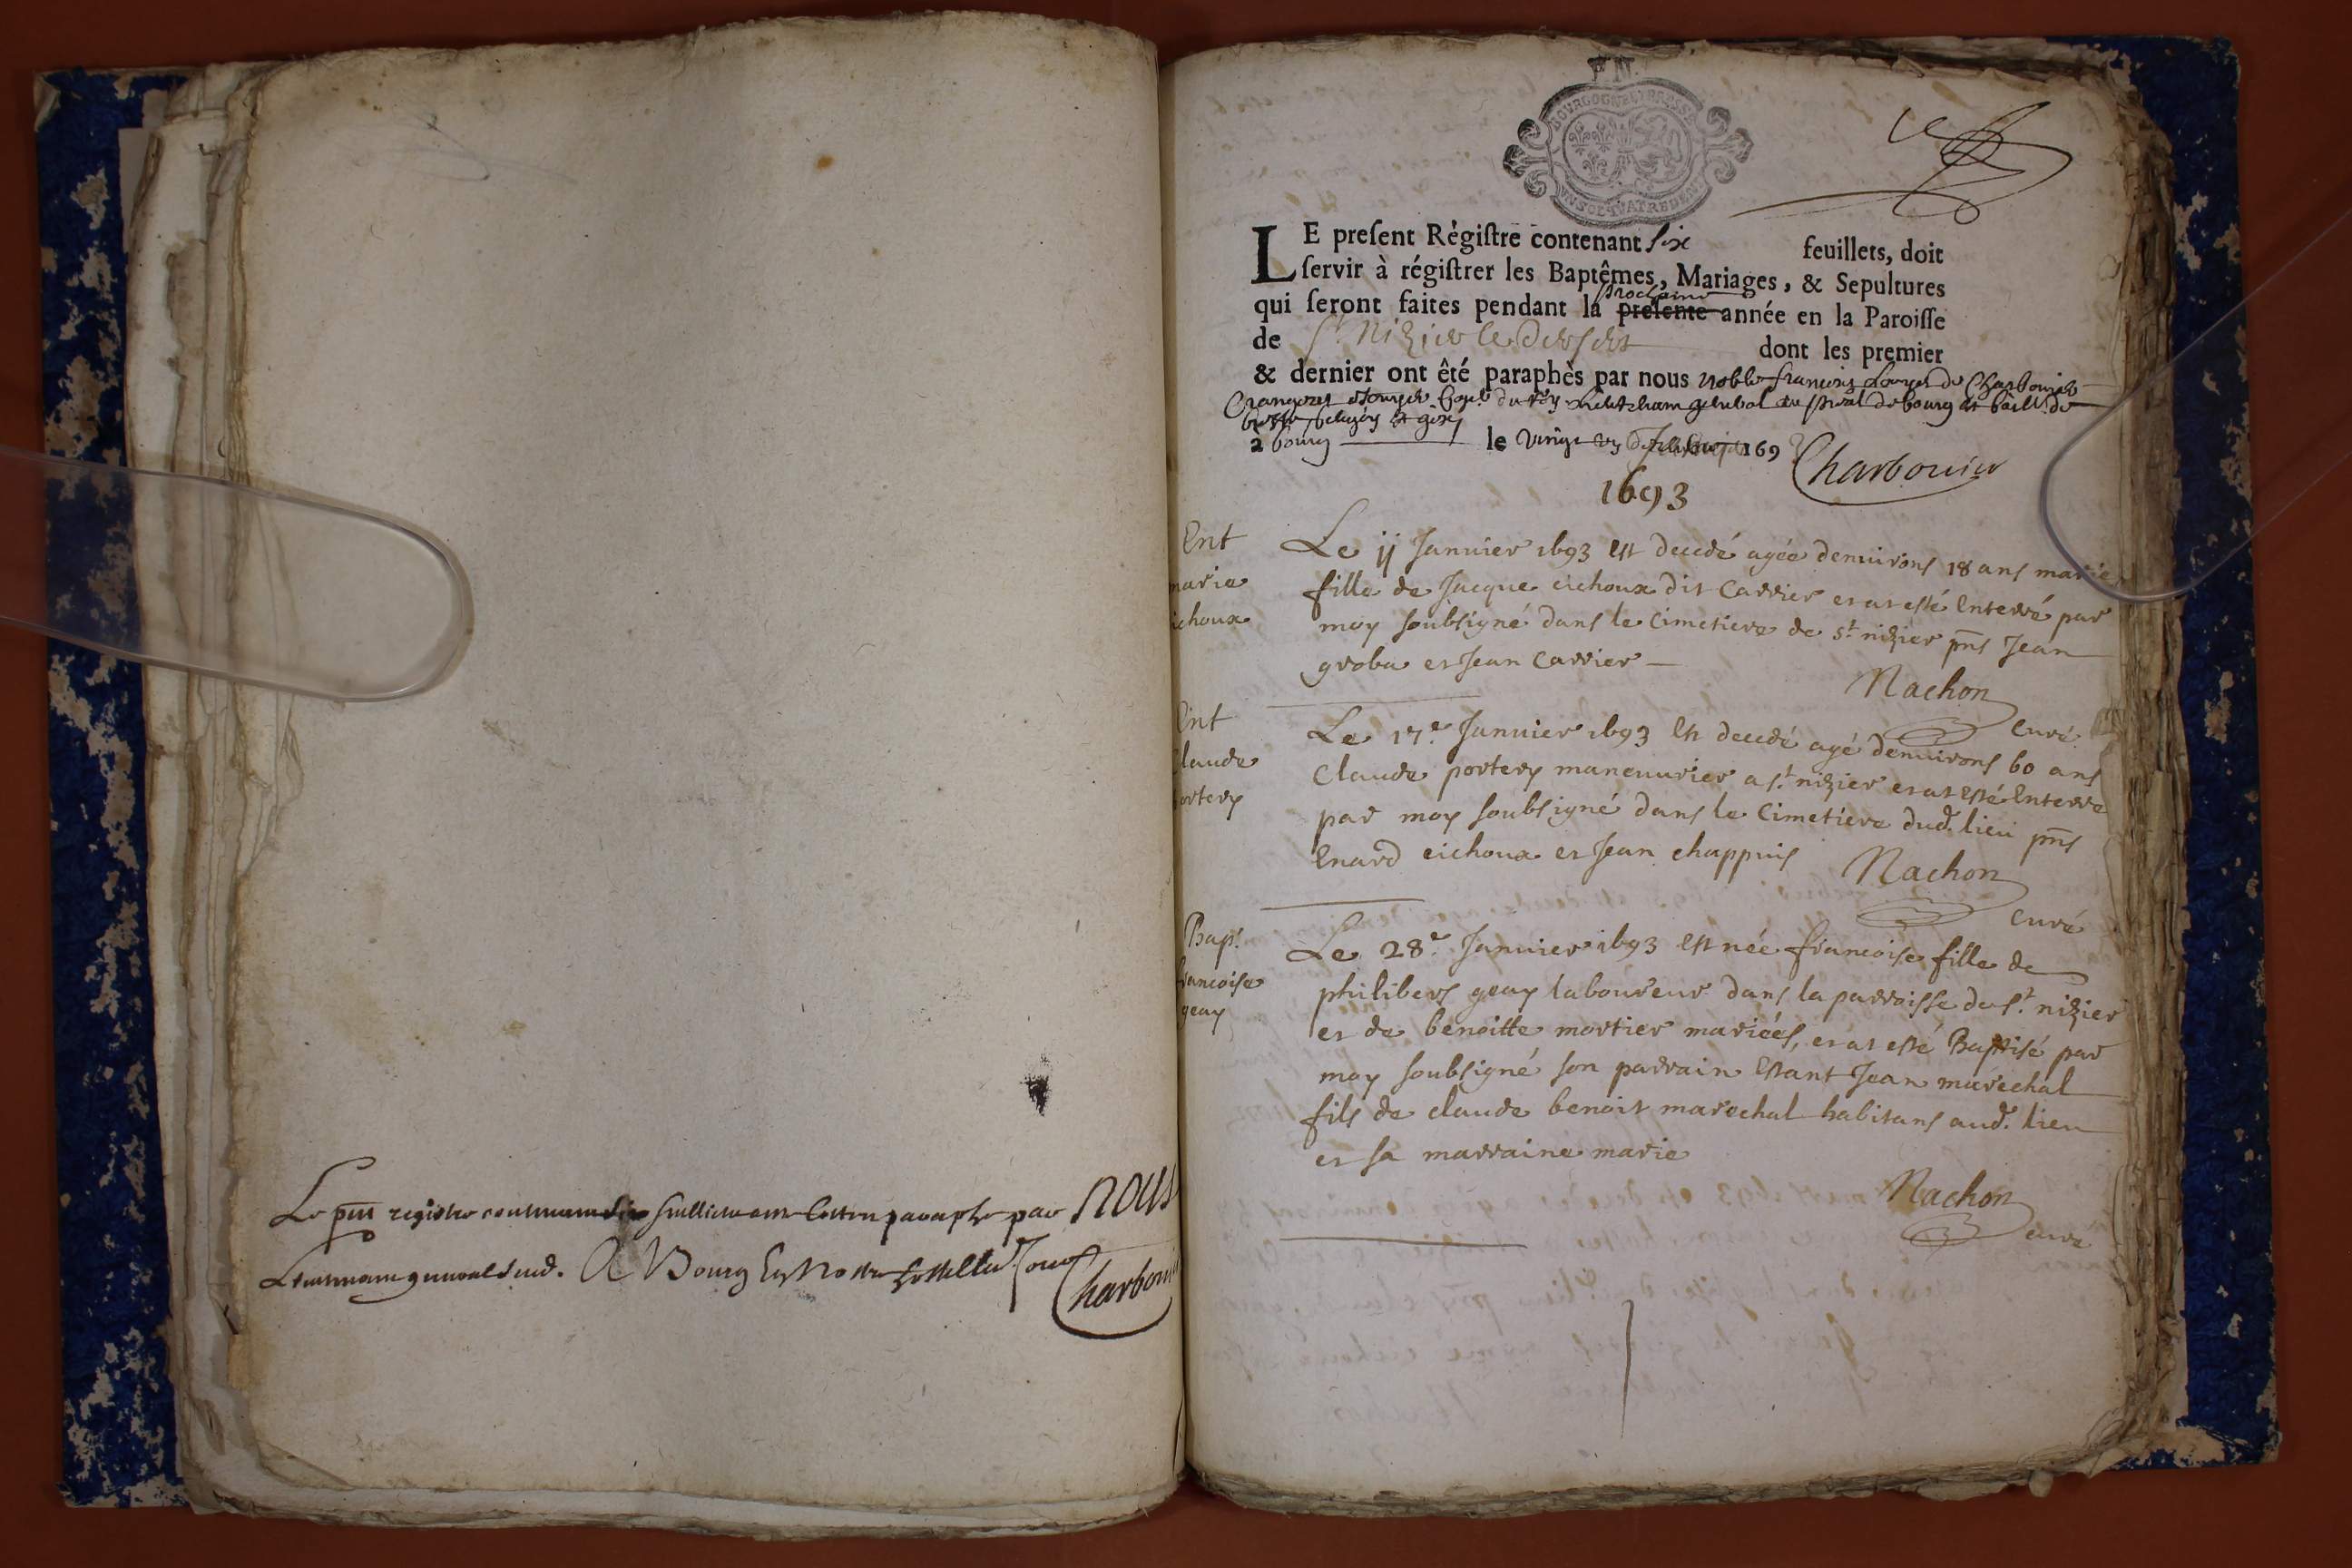 Le pnt registre contenant six feuillets a este cotté et paraphé par NOUS
Lieutenant general sud. A Bourg En Nostre hostel led. Jour
Charbonnier
BOURGOGNE ET BRESSE
VN SOL QVATRE DEN
LE present Régistre contenant six feuillets, doit
servir à régistrer les Baptêmes, Mariages, & Sepultures
qui seront faites pendant la prochaine presente année en la Paroisse
de St Nizier le Desert dont les premier
& dernier ont êté paraphès par nous noble françois de Charbonnier
Crangeac du Roy Lieutenant general au de bourg et de
bresse et gex
a bourg le vingt un 169
Charbonnier
1693
Ent
marie
ichoux
Le ij Janvier 1693 est decedé agée denvirons 18 ans marie
fille de Jacque cichoux dit Carrier et at esté Enterré par
moy soubsigné dans le Cimetiere de St nizier pnts Jean
groba et Jean Carrier
Nachon
Curé
Ent
Claude
portery
Le 17e Janvier 1693 Est decedé agé denvirons 60 ans
Claude portery maneuvrier a St nizier et at esté Enterre
par moy soubsigné dans le Cimetiere dud. lieu pnts
Enard cichoux et Jean chappuis
Nachon
Curé
Bapt.
francoise
geay
Le 28e Janvier 1693 est née francoise fille de
philibert geay laboureur dans la parroisse de St. nizier
et de benoitte mortier mariées, et at esté Baptisé par
moy soubsigné son parrain Estant Jean marechal
fils de claude benoit marechal habitans aud. lieu
et sa marraine marie
Nachon
curé